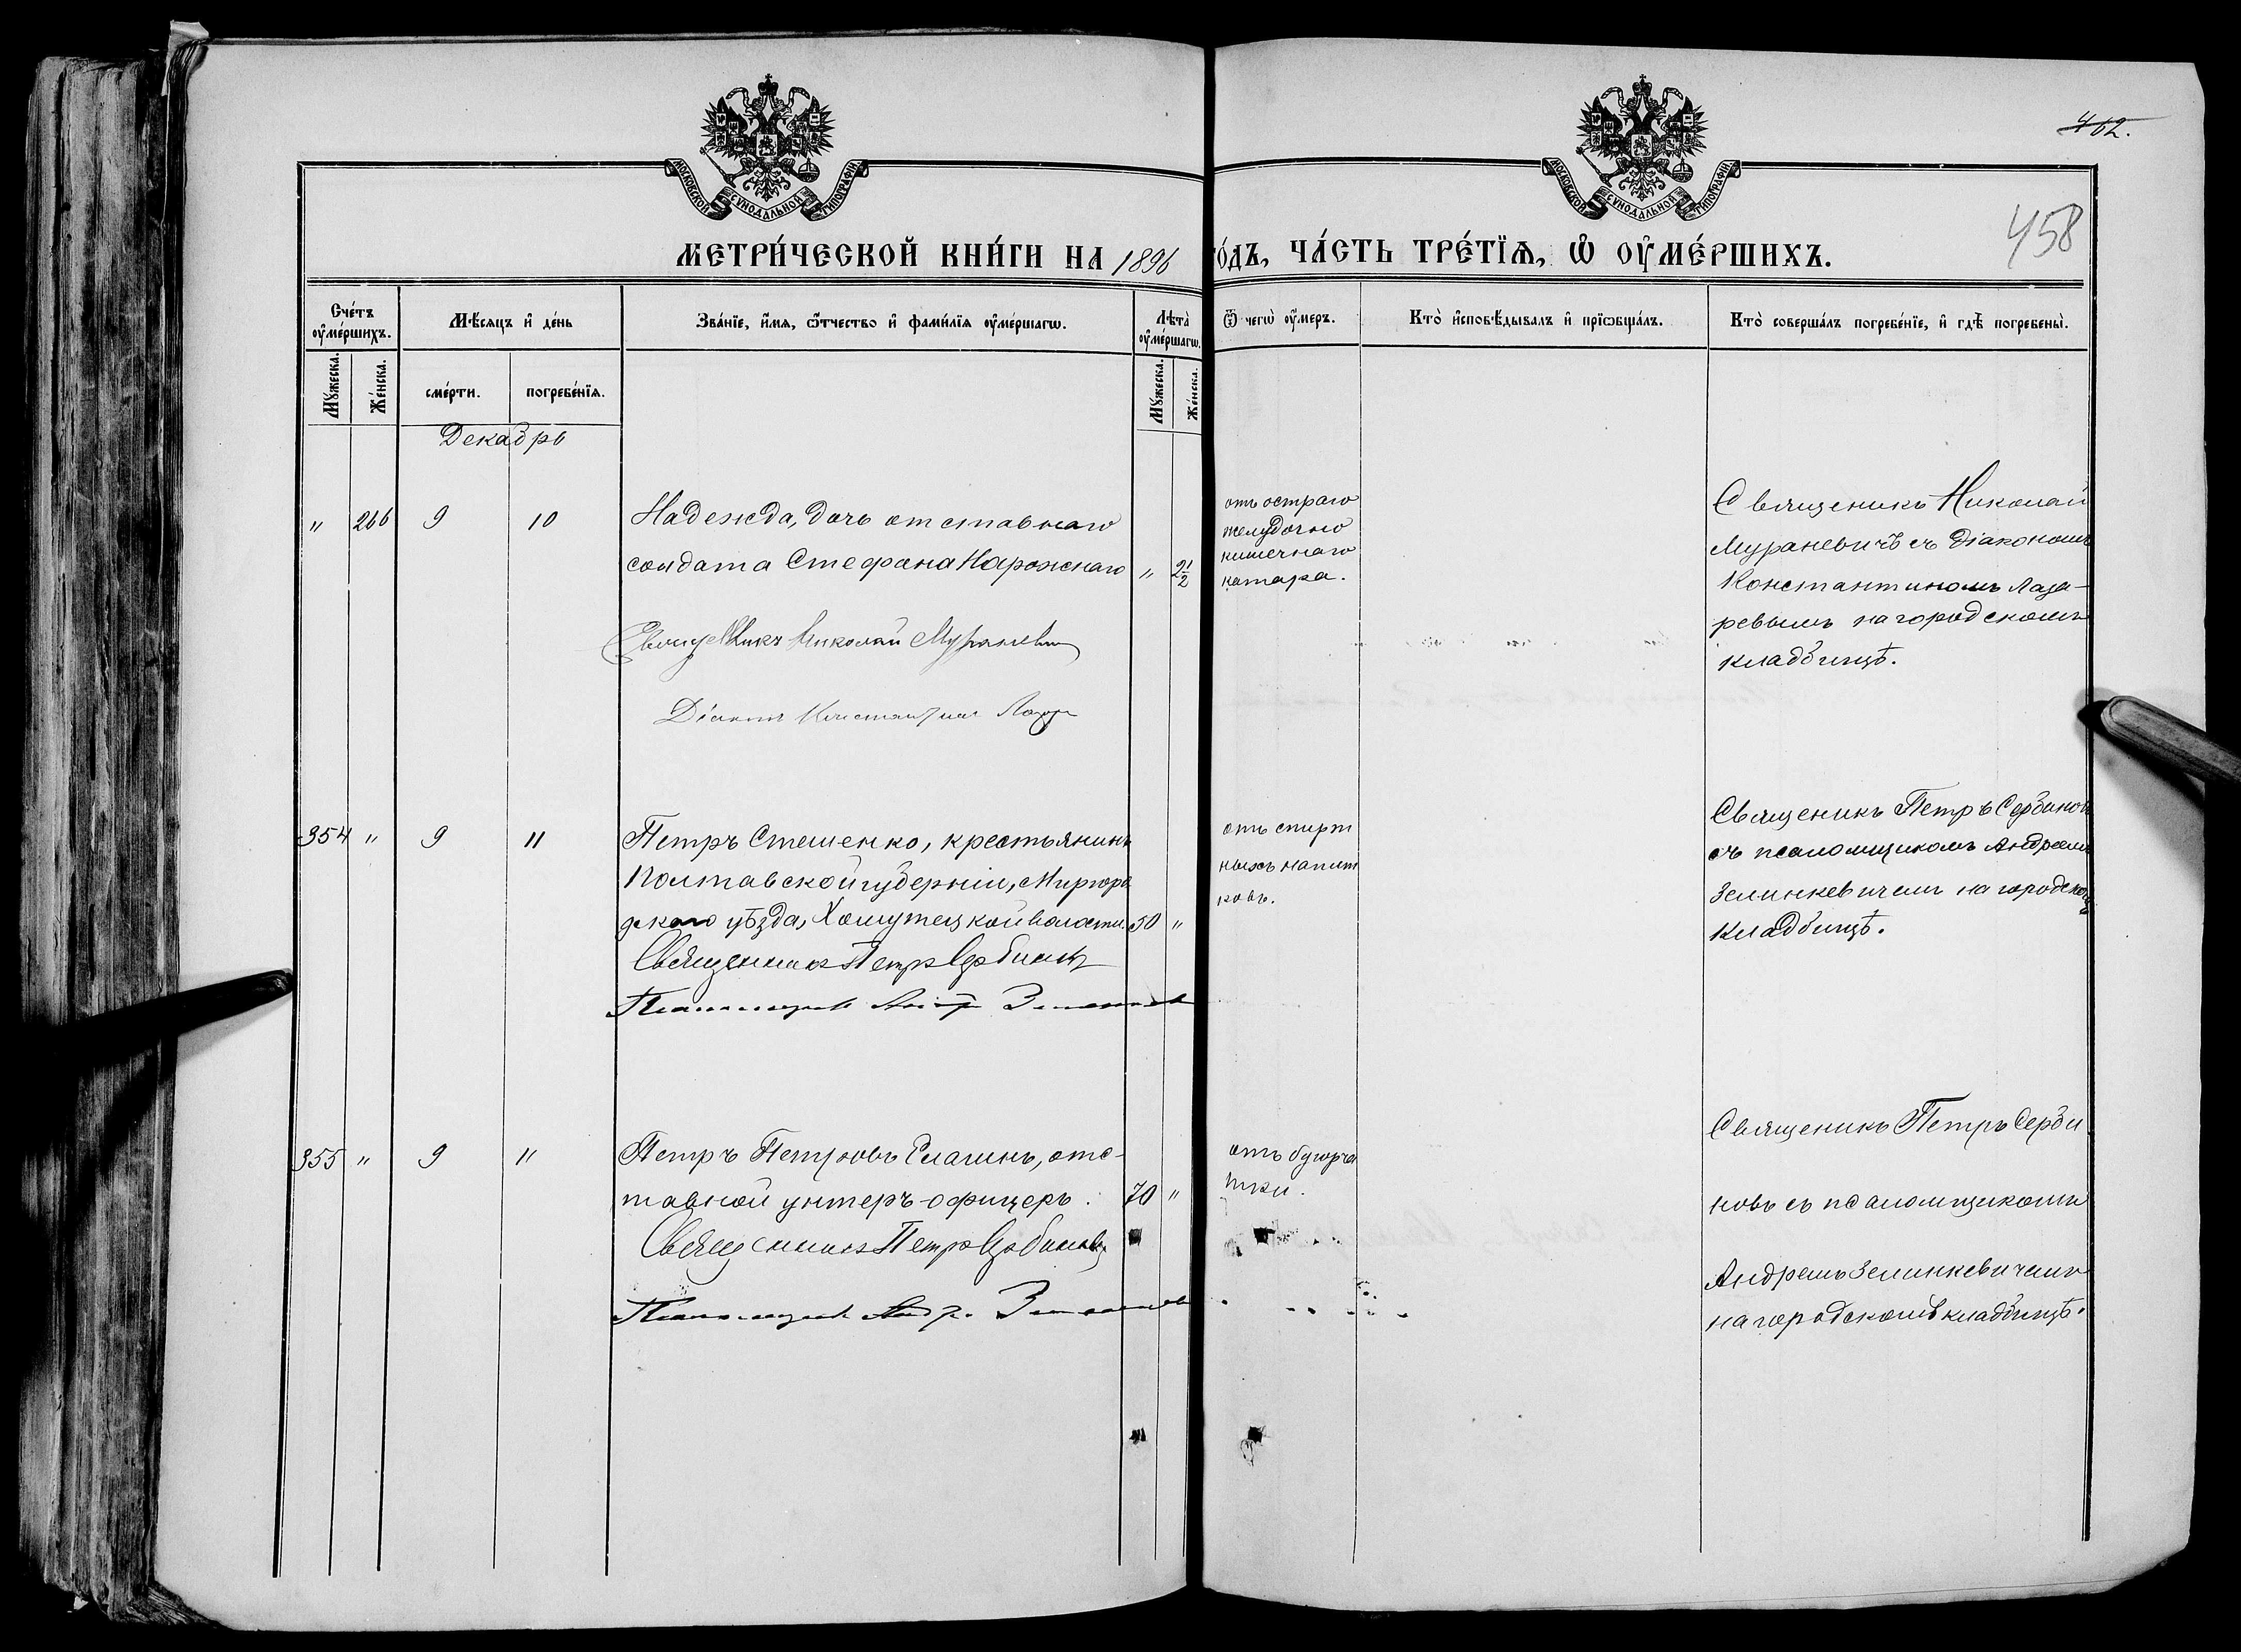 462.
458
МОСКОВСКОЙ СУНОДАЛЬНОЙ ТИПОГРАФІИ.
МОСКОВСКОЙ СУНОДАЛЬНОЙ ТИПОГРАФІИ.
МЕТРИ́ЧЕСКОЙ КНИ́ГИ НА 1896 ГО́ДЪ, ЧА́СТЬ ТРЕ́ТІѦ, Ѡ҆ ОУ҆МЕ́РШИХЪ.
Сче́тъ оу҆ме́ршихъ.
Мѣ́сяцъ и҆ де́нь
Зва́нїе, и҆́мѧ, ѻ҆́тчество и҆ фами́лїѧ оу҆ме́ршагѡ.
Лѣ́та оу҆ме́ршагѡ.
Ѿ чегѡ̀ оу҆́меръ.
Кто̀ и҆сповѣ́дывалъ и҆ прїѡбща́лъ.
Кто̀ соверша́лъ погребе́нїе, и҆ гдѣ̀ погребены̀.
Мꙋ́жеска.
Же́нска.
сме́рти.
погребе́нїѧ.
Мꙋ́жеска.
Же́нска.
Декабрь
" 266 9 10
Надежда, дочь отставнаго
солдата Стефана Нарожнаго " 2 1/2
Священникъ Николай Мураневич
Діаконъ Константин Лазар
отъ остраго
желудочно
кишечнаго
катара.
Священикъ Николай
Мураневичъ съ Діакономъ
Константиномъ Лаза-
ревымъ на городскомъ
кладбищѣ.
354 " 9 11
Петръ Стешенко, крестьянинъ
Полтавской губерніи, Миргоро
дскаго уѣзда, Хомутецкой волости. 50 "
Священникъ Петръ Сербиновъ
Псаломщикъ Андр Зелинкев
отъ спирт
ныхъ напит
ковъ.
Священикъ Петръ Сербиновъ
съ псаломщикомъ Андреемъ
Зелинкевичемъ на городском
кладбищѣ.
355 " 9 11
Петръ Петровъ Елагинъ, отс-
тавной унтеръ-офицеръ. 70 "
Священникъ Петръ Сербиновъ
Псаломщикъ Андр. Зелинкев
отъ бугорча
тки.
Священикъ Петръ Серби
новъ съ псаломщикомъ
Андреемъ Зелинкевичемъ
на городскомъ кладбищѣ.